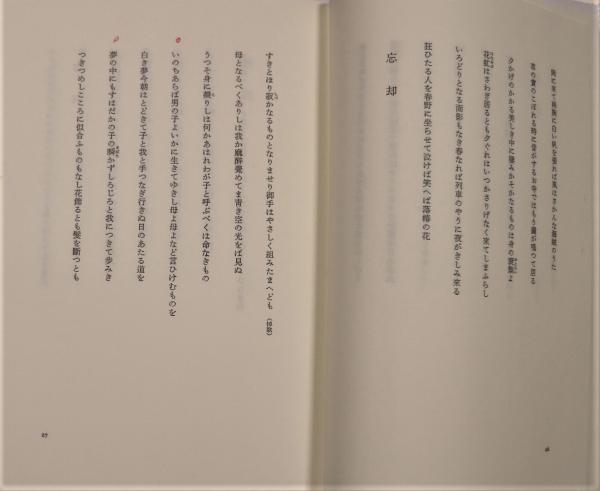 胸に来て帆胸に白い帆を張れば風はさかんな海賊のうた
恋の實のこぼれる時に音がするお寺ではもう鐘が鳴つて居る
夕かげのかかる美しき中に棲みかそかなるものは身の
花虻はさわぎ居るとも夕ぐれはいつかさりげなく來てしまふらし
いろどりとなる面影もなき春なれば列車のやうに夜がきしみ來る
狂ひたる人を春野に坐らせて泣けば笑へば落椿の花
忘却
すきとほり寂かなるものとなりませり御手はやさしく組みたまへども（悼歌）
母となるべくありしは我か麻醉覺めてまま靑き空の光をば見ぬ
うつそ身に獲りしは何かあはれわが子と呼ぶべくは命なきもの
いのちあらば男の子よいかに生きてゆきし母よ母よなど言ひけむものを
白き夢今朝はとどきて子と我と手つなぎ行きぬ日のあたる道を
夢の中にもすはだかの子の瞬かずしろじろと我につきて歩みき
つきつめしこころに似合ふものもなし花飾るとも髮を斷つとも
27